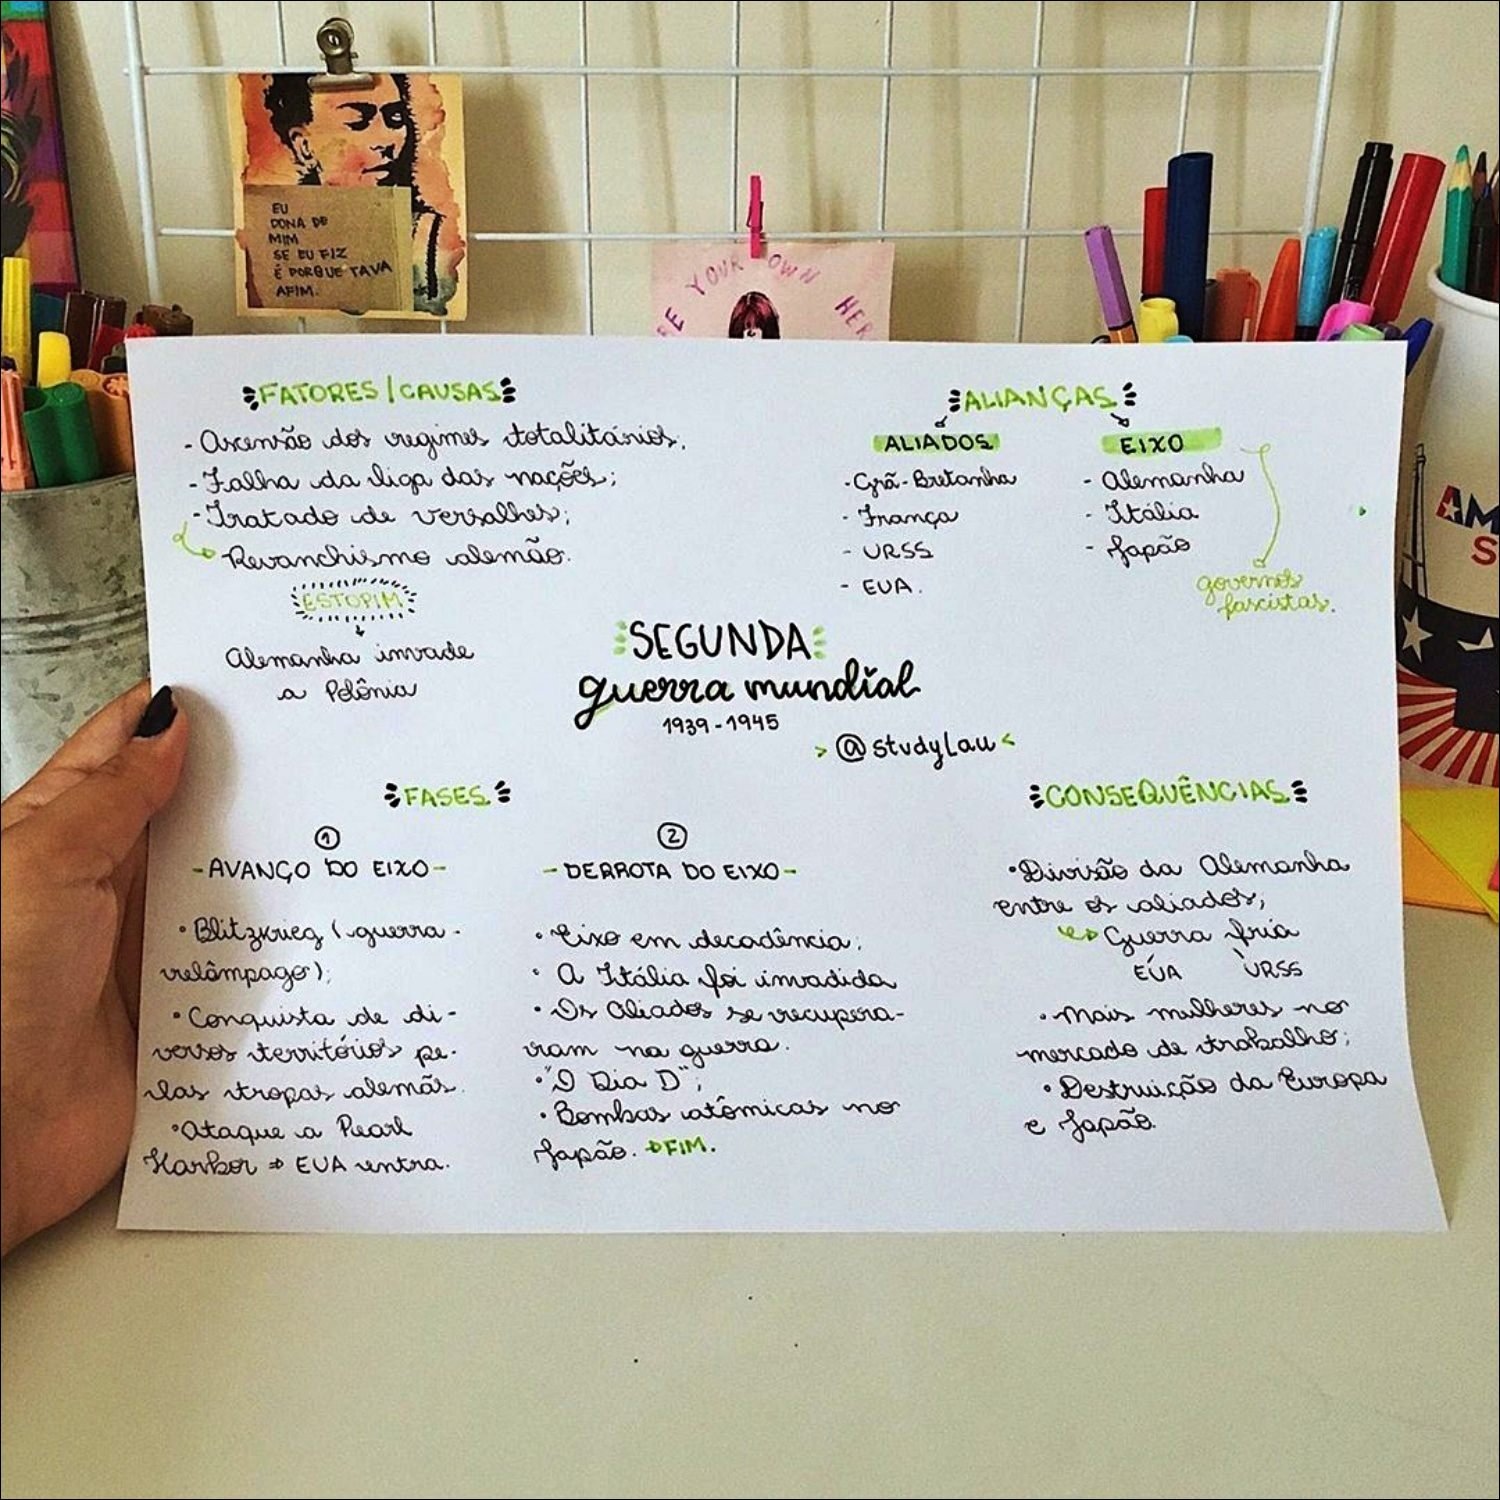 EU
DONA DE
MIM
SE EU FIZ
É PORQUE TAVA
AFIM.
YOUR OWN HER
FATORES/CAUSAS
- Ascensão dos regimes totalitários.
- Falha da liga das nações;
- Tratado de versalhes;
Revanchismo alemão.
ESTOPIM
Alemanha invade
a Polônia
ALIANÇAS
ALIADOS
- Grã-Bretanha
- França
- URSS
- EUA.
EIXO
- Alemanha
- Itália
- Japão
governos
fascistas.
SEGUNDA
guerra mundial
1939-1945
> @studylau <
FASES
1
- AVANÇO DO EIXO -
• Blitzkrieg (guerra-
relâmpago);
• Conquista de di-
versos territórios pe-
las tropas alemãs.
• Ataque a Pearl
Harbor ⇒ EUA entra.
2
- DERROTA DO EIXO -
• Eixo em decadência;
• A Itália foi invadida
• Os Aliados se recupera-
ram na guerra.
• "O Dia D";
• Bombas atômicas no
Japão. ⇒ FIM.
CONSEQUÊNCIAS
• Divisão da Alemanha
entre os aliados;
Guerra fria
EUA URSS
• Mais mulheres no
mercado de trabalho;
• Destruição da Europa
e Japão.